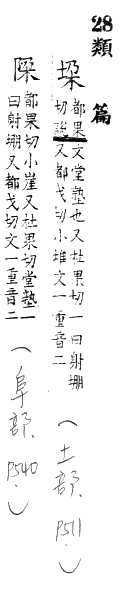 28類篇
垜 都果文堂塾也又杜果切一曰射堋
切說又都戈切小堆文一重音二
(土部. P511.)
陎 都果切小崖又杜果切堂塾一
曰射堋又都戈切文一重音二
(阜部. P540.)